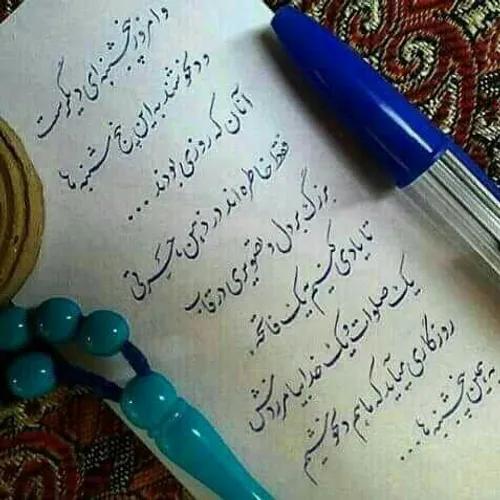 و امروز پنجشنبه‌ای دیگرست
و دلخوشند به این پنج شنبه ها
آنان که روزی بودند ...
فقط خاطره اند در ذهن، حسرتی
بزرگ بر دل و تصویری در قاب
تا یادی کنیم یک فاتحه،
یک صلوات و یک خدابیامرزدش
روزگاری میآید که ما هم دلخوشیم
به همین پنجشنبه ها ...